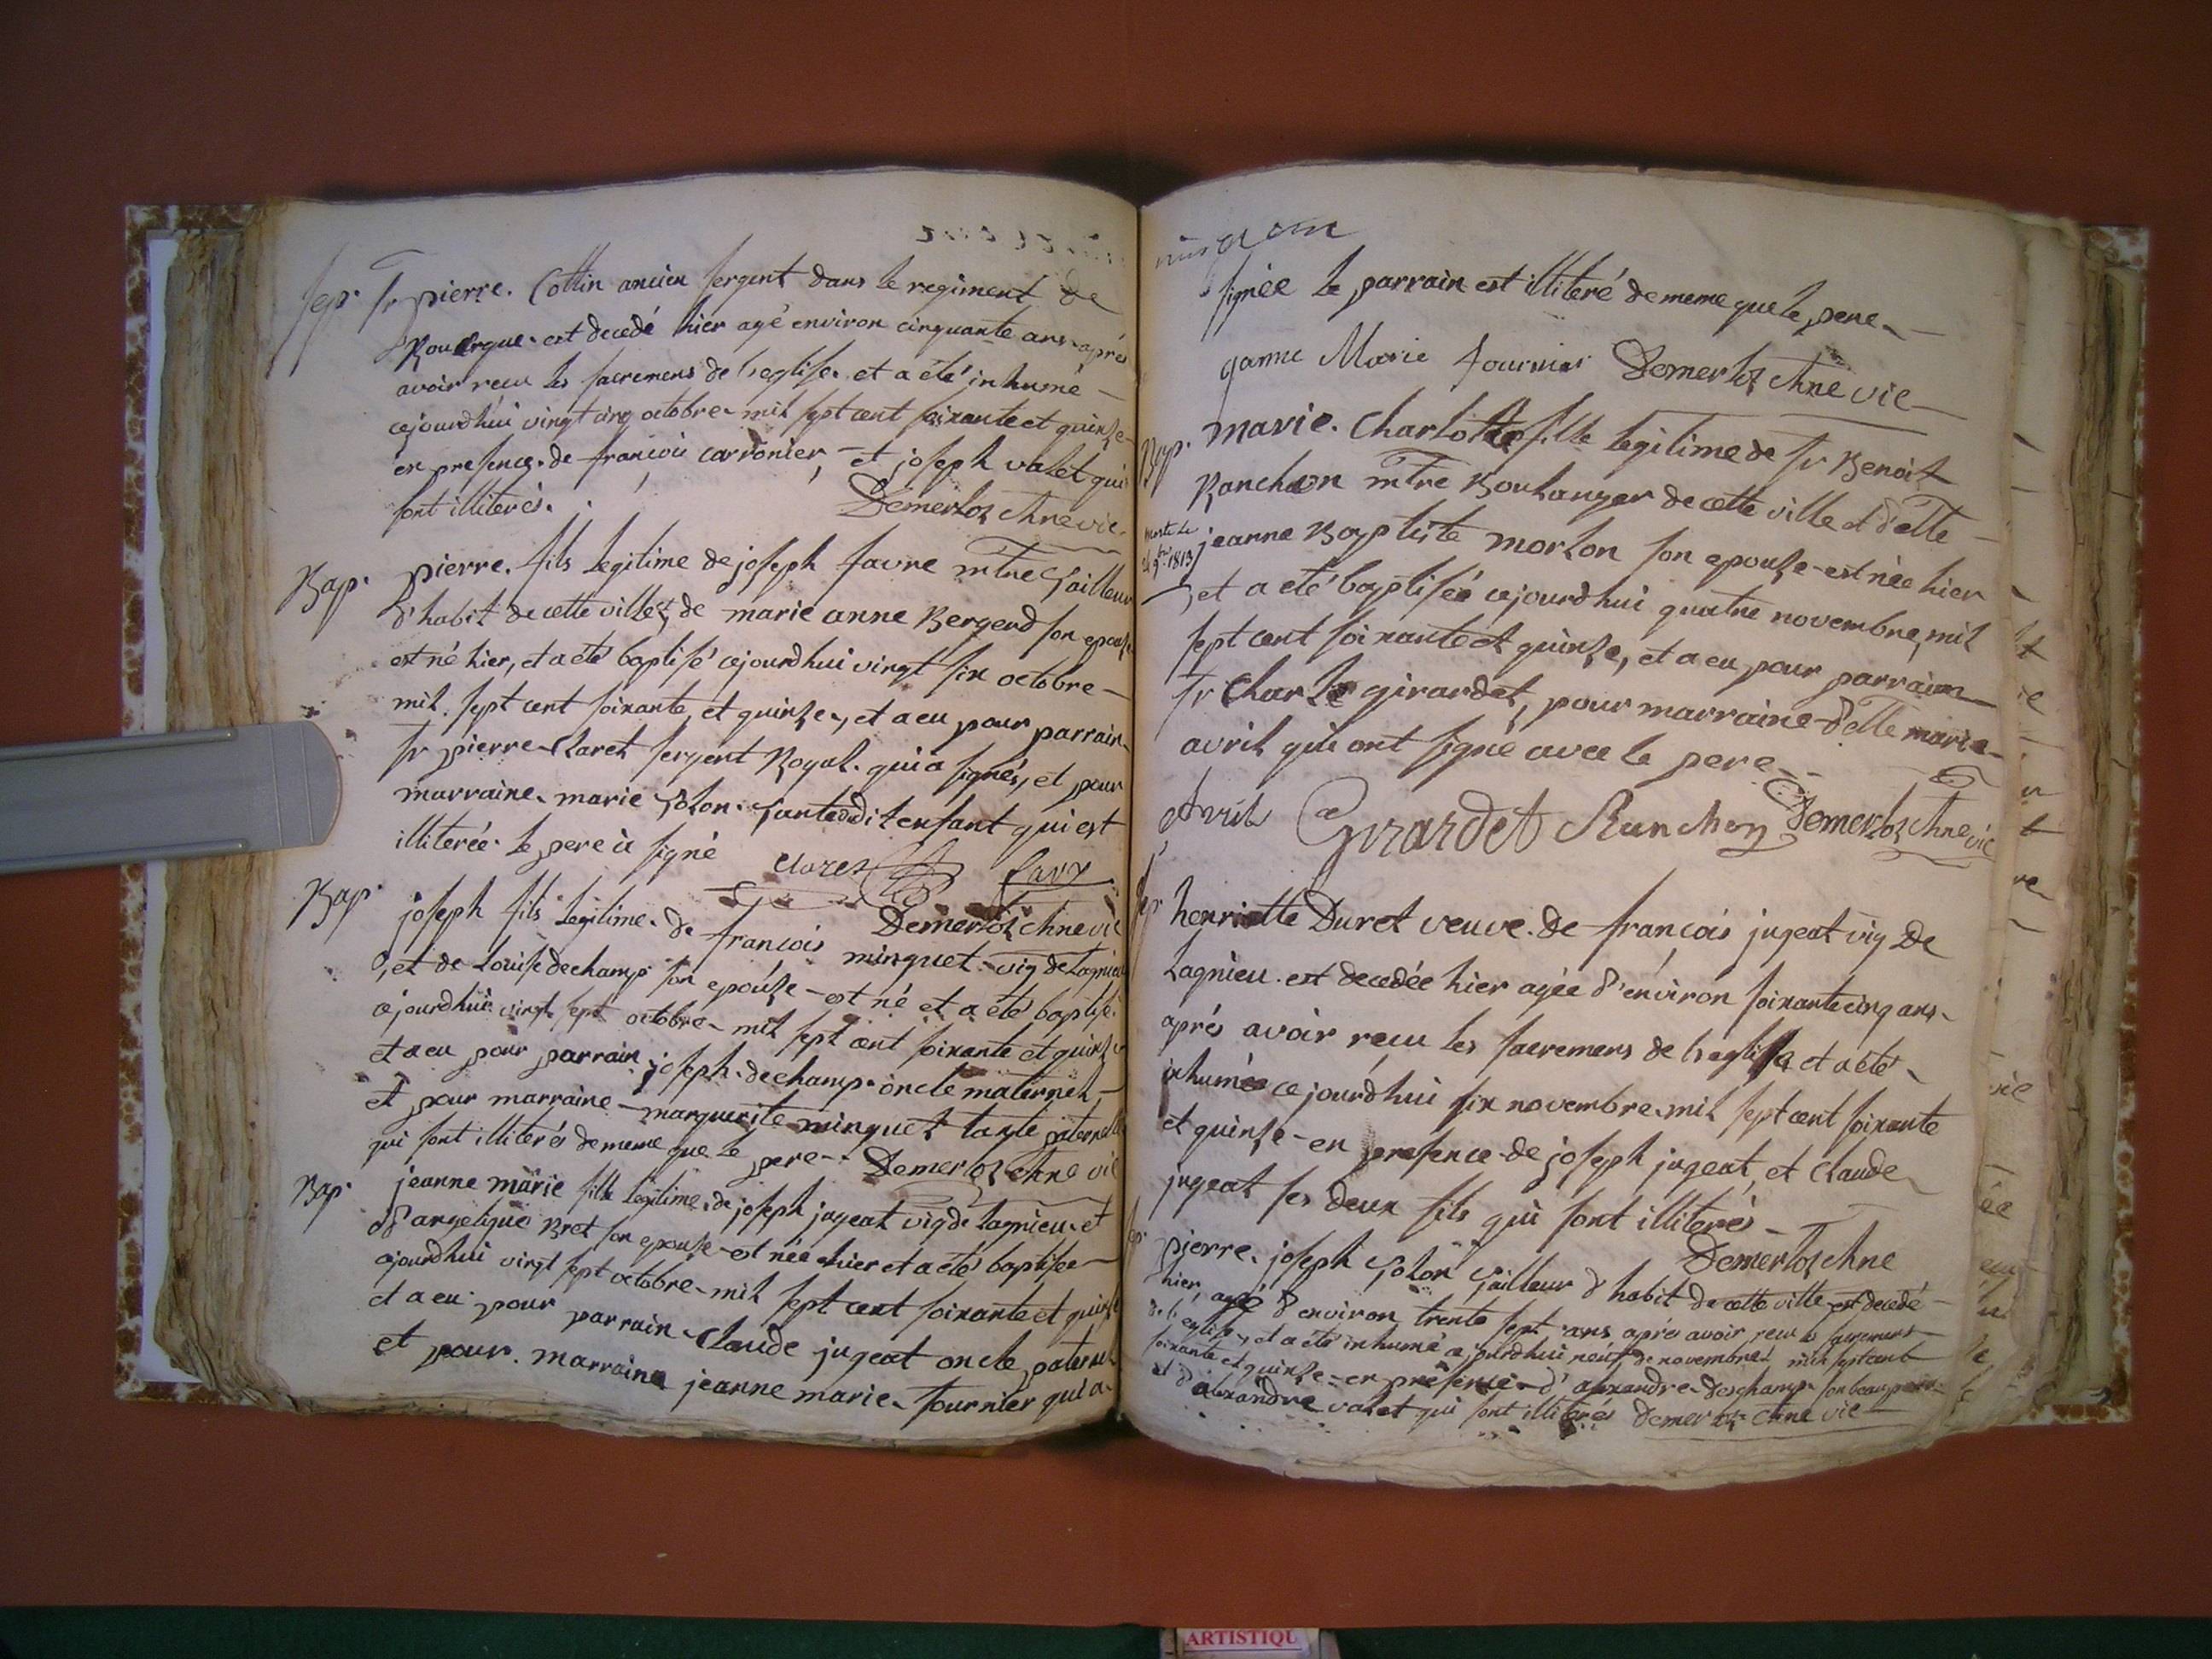 sep. sr pierre. Collin ancien sergent dans le regiment de
Rouergue. est decedé hier agé environ cinquante ans aprés
avoir recu les sacremens de l'eglise. et a été inhumé
cejourd'hui vingt cinq octobre mil sept cent soixante et quinze
en presence de francois carronier, et joseph valet qui
sont illiterés. Demerloz chne vic.
Bap. pierre. fils legitime de joseph favre mtre tailleur
d'habit de cette ville et de marie anne Bergerd son epouse
est né hier, et a été baptisé cejourdhui vingt six octobre
mil sept cent soixante et quinze, et a eu pour parrain
sr pierre Claret sergent Royal. qui a signés, et pour
marraine. marie solon. tante dudit enfant qui est
illiterée. le pere à signé Claret favr
Demerloz chne vic
Bap. joseph fils legitime. de francois minguet vig de Lagnieu
et de Louise dechamp son epouse est né et a été baptisé
cejourdhui vingt sept octobre mil sept cent soixante et quinze
et a eu pour parrain joseph dechamp oncle maternel,
et pour marraine marguerite minguet tante paternelle
qui sont illiterés de meme que le pere. Demerloz chne vic
Bap. jeanne marie fille legitime. de joseph jugeat vig de lagnieu et
d'angelique Bret son epouse est née hier et a été baptisée
cejourdhui vingt sept octobre mil sept cent soixante et quinze
et a eu pour parrain Claude jugeat oncle paternel
et pour marraine jeanne marie fournier qui a
signée le parrain est illiteré de meme que le pere
janne Marie fournier Demerloz chne vic
Bap. marie. Charlotte fille legitime de sr Benoit
Ranchon mtre Boulanger de cette ville et d'elle
morte le 1813 jeanne Baptiste morlon son epouse est née hier
et a été baptisée cejourdhui quatre novembre mil
sept cent soixante et quinze, et a eu pour parrain
sr Charle girardet, pour marraine delle marie
avril qui ont signé avec le pere
Avril Girardet Runchon Demerloz chne vic
sep. henriette Duret veuve. de françois jugeat vig De
Lagnieu. est decedée hier agée d'environ soixante cinq ans
aprés avoir recu les sacremens de l'eglise et a été
inhumée cejourdhui six novembre mil sept cent soixante
et quinze en presence de joseph jugeat, et Claude
jugeat ses deux fils qui sont illiterés
Demerloz chne
sep. pierre. joseph solon tailleur d'habit de cette ville est decedé
hier, agé d'environ trente sept ans aprés avoir recu les sacremens
de l'eglise, et a été inhumé cejourdhui neuf de novembre mil sept cent
soixante et quinze en presence d'alexandre deschamp son beaupere
et d'alexandre valet qui sont illiterés Demerloz chne vic
ARTISTIQU